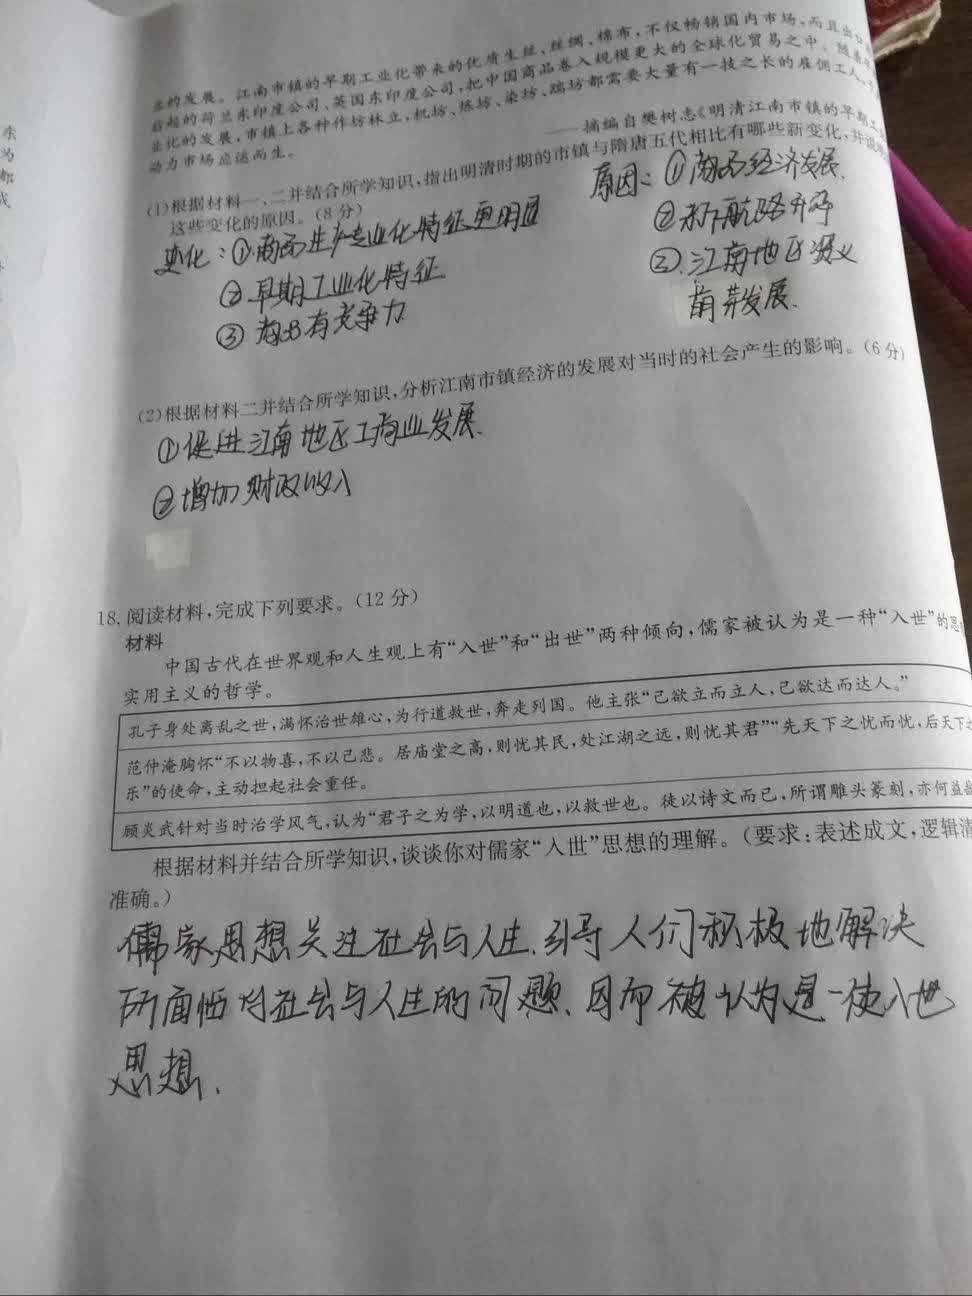 业的发展。江南市镇的早期工业化带来的优质生丝、丝绸、棉布,不仅畅销国内市场,而且出口
后起的荷兰东印度公司、英国东印度公司,把中国商品卷入规模更大的全球化贸易之中。随着
业化的发展,市镇上各种作坊林立,机坊、炼坊、染坊、踹坊都需要大量有一技之长的雇佣工人,
动力市场应运而生。
——摘编自樊树志《明清江南市镇的早期工
(1)根据材料一、二并结合所学知识,指出明清时期的市镇与隋唐五代相比有哪些新变化,并说
这些变化的原因。(8分)
原因:①商品经济发展.
变化:①商品生产专业化特征更明显
②新航路开辟
②早期工业化特征
③.江南地区
③商品有竞争力
发展.
(2)根据材料二并结合所学知识,分析江南市镇经济的发展对当时的社会产生的影响。(6分)
①促进江南地区工商业发展.
②增加财政收入
18.阅读材料,完成下列要求。(12分)
材料
中国古代在世界观和人生观上有“入世”和“出世”两种倾向,儒家被认为是一种“入世”的思
实用主义的哲学。
孔子身处离乱之世,满怀治世雄心,为行道救世,奔走列国。他主张“己欲立而立人,己欲达而达人。”
范仲淹胸怀“不以物喜,不以己悲。居庙堂之高,则忧其民,处江湖之远,则忧其君”“先天下之忧而忧,后天下之
乐”的使命,主动担起社会重任。
顾炎武针对当时治学风气,认为“君子之为学,以明道也,以救世也。徒以诗文而已,所谓雕头篆刻,亦何益哉
根据材料并结合所学知识,谈谈你对儒家“入世”思想的理解。(要求:表述成文,逻辑清
准确。)
儒家思想关注社会与人生.引导人们积极地解决
所面临的社会与人生的问题、因而被认为是一使入世
思想.